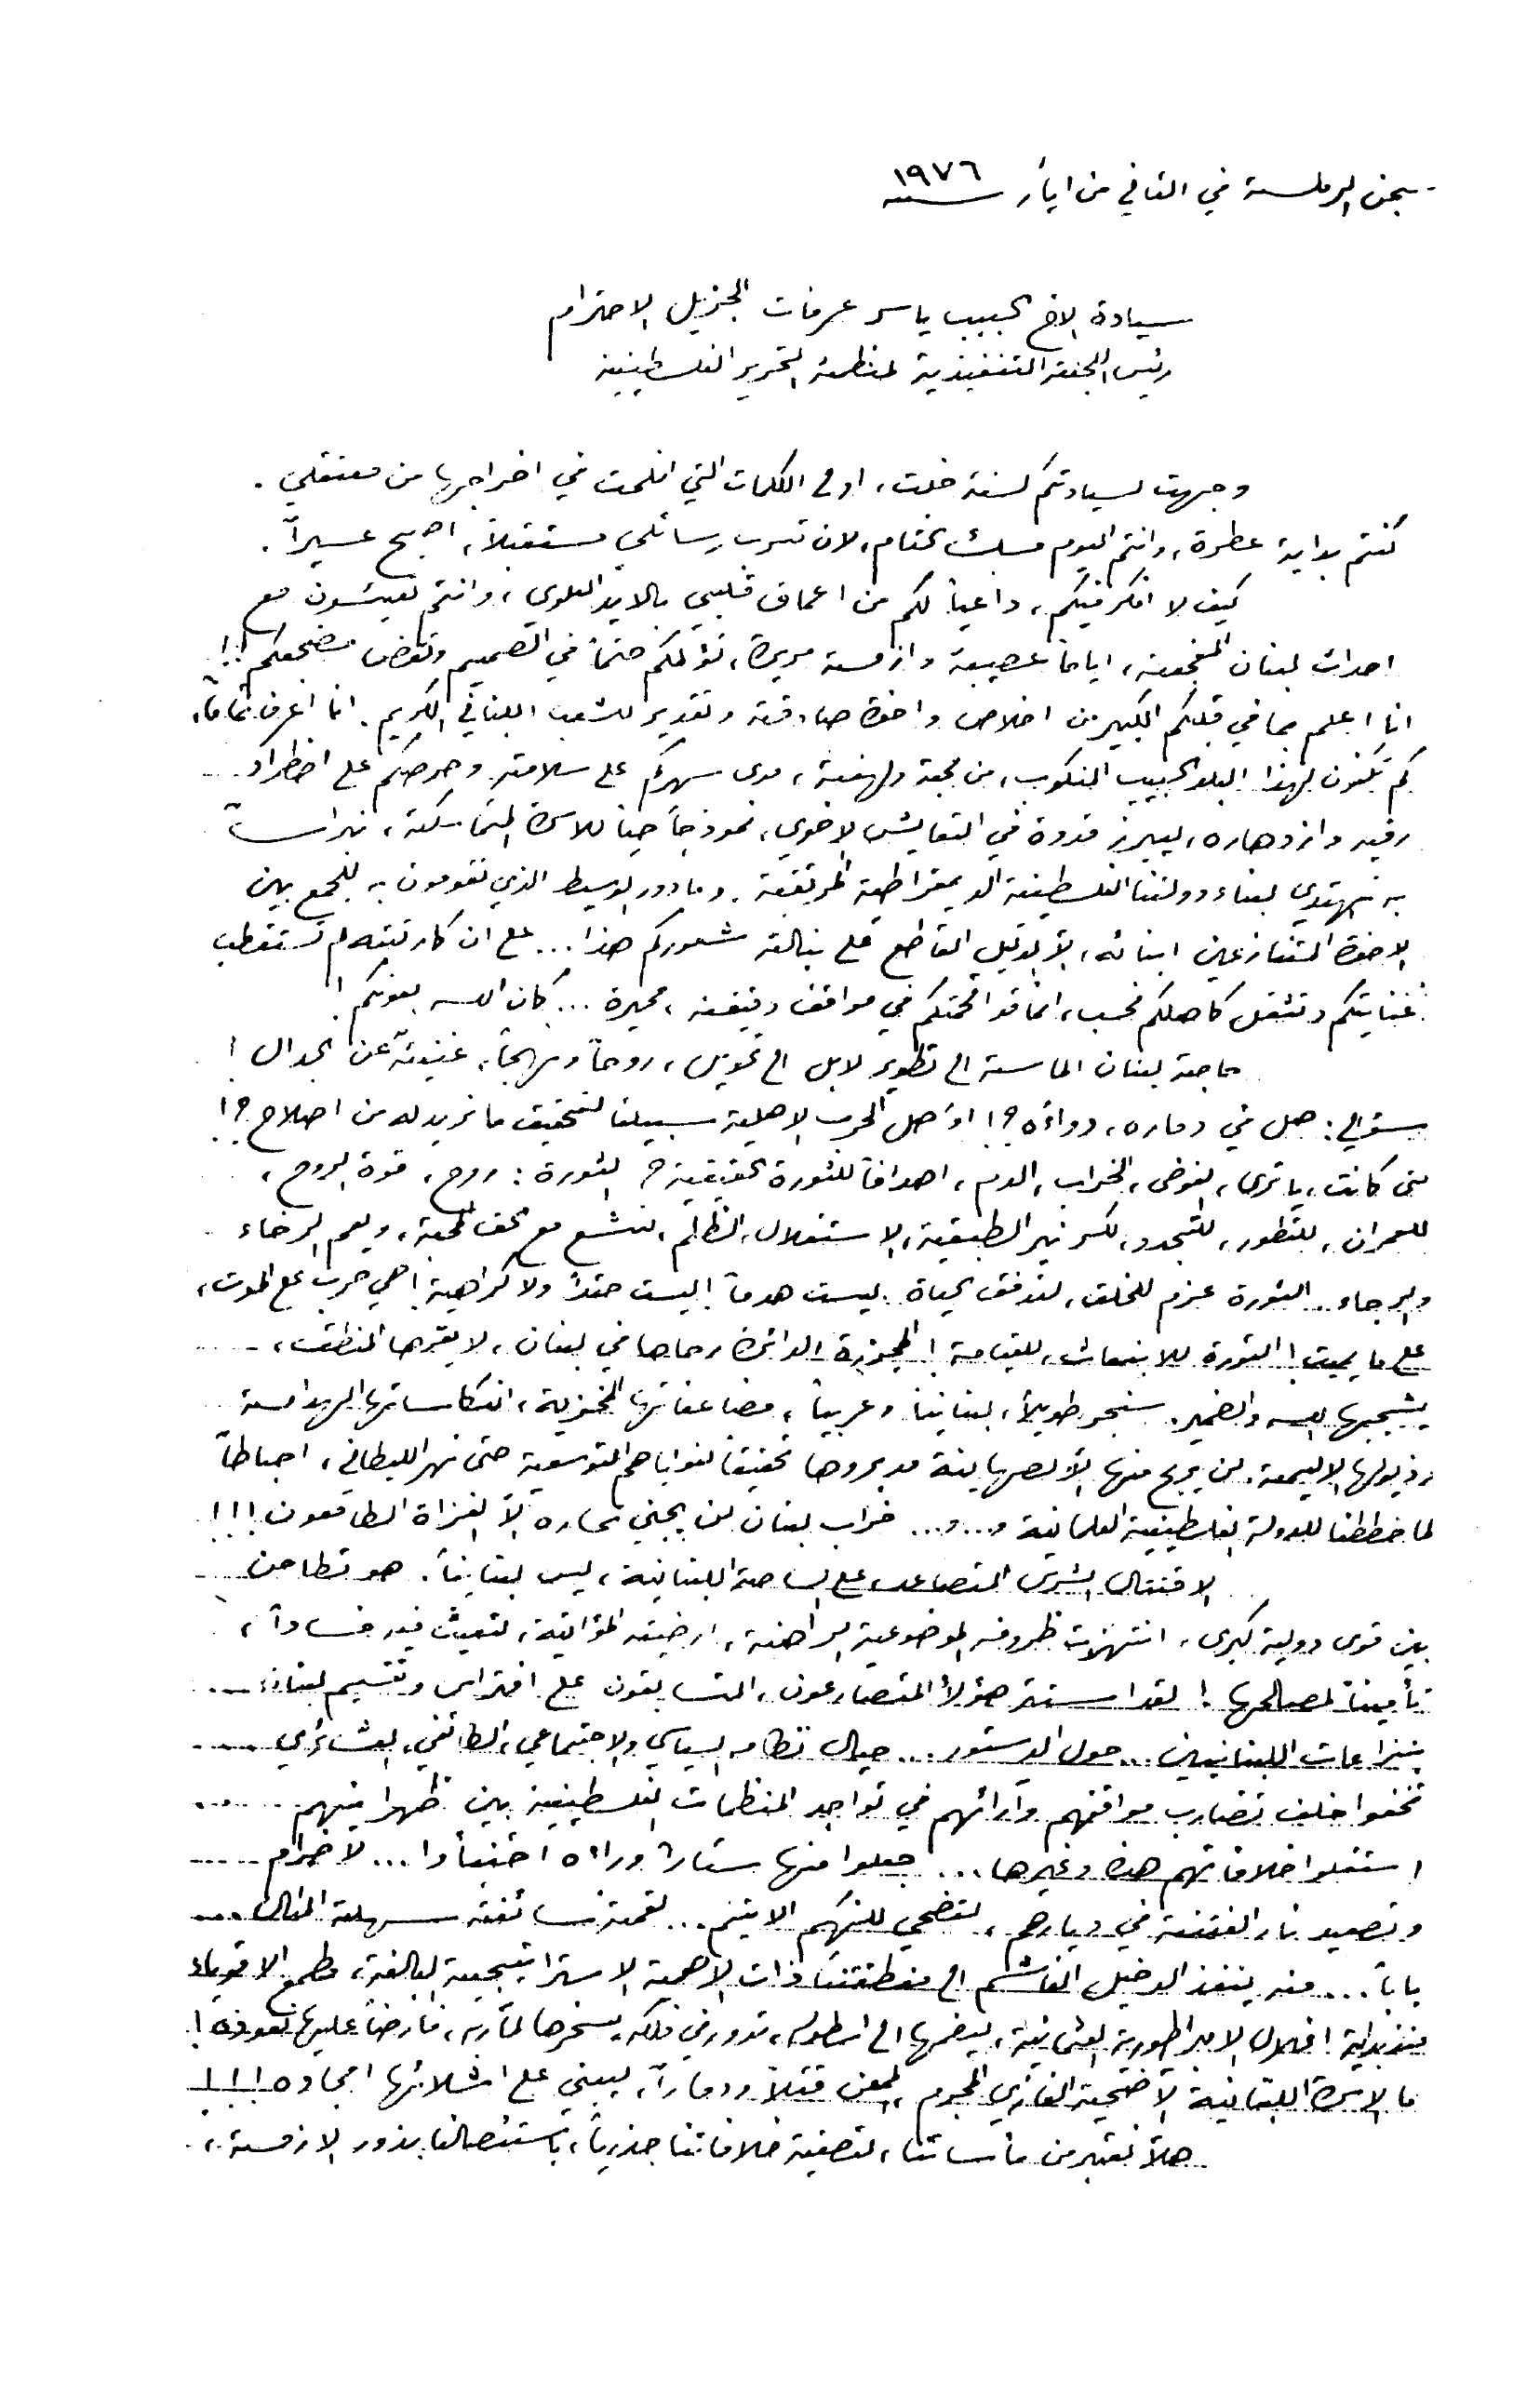 سجن الرملة في الثاني من ايار سنة ١٩٧٦
سيادة الاخ الحبيب ياسر عرفات الجزيل الاحترام
رئيس اللجنة التنفيذية لمنظمة التحرير الفلسطينية
وجهت لسيادتكم لسنة خلت، اولى الكلمات التي افلحت في اخراجها من معتقلي.
كنتم بداية عطرة، وانتم اليوم مسك الختام، لان تسرب رسائلي مستقبلاً، اصبح عسيراً.
كيف لا افكر فيكم، داعياً لكم من اعماق قلبي بالايد العلوي، وانتم تعيشون مع
احداث لبنان المفجعة، اياماً عصيبة وازمة مريرة، تؤلمكم حتماً في الصميم وتقض مضجعكم!!
انا اعلم بما في قلبكم الكبير من اخلاص واخوة صادقة وتقدير للشعب اللبناني الكريم. انا اعرف تماماً،
كم تكنون لهذا البلد الحبيب المنكوب، من محبة ولهفة، مدى سهركم على سلامته وحرصكم على اضطراد
رقيه وازدهاره، ليبرز قدوة في التعايش الاخوي، نموذجاً حياً للاسرة المتماسكة، نبراساً
به نهتدي لبناء دولتنا الفلسطينية الديمقراطية المرتقبة. وما دور الوسيط الذي تقومون به للجمع بين
الاخوة المتنازعين ابنائه، الاّ الدليل القاطع على نبالة شعوركم هذا... على ان كارثته لم تستقطب
عنايتكم وتثقل كاهلكم فحسب، انما قد اقحمتكم في مواقف دقيقة، محيرة... كان الله بعونكم!
حاجة لبنان الماسة الى تطوير لا بل الى تحويل، روحاً ونهجاً، غنيةٌ عن الجدال!
سؤالي: هل في دماره، دواؤه؟! اوَهل الحرب الاهلية سبيلنا لتحقيق ما نريد له من اصلاح؟!
متى كانت، يا ترى، الفوضى، الخراب، الدم، اهدافاً للثورة الحقيقية؟ الثورة: روح، قوة الروح،
للعمران، للتطور، للتجدد، لكسر نير الطبقية، الاستغلال، الظالم، لتشع مع الحق المحبة، ويعم الرخاء
والرجاء.. الثورة عزم للخلق، لتدفق الحياة. ليست هدماً! ليست حقداً ولا كراهية! هي حرب على الموت،
على ما يميت! الثورة للانبعاث، للقيامة! المجزرة الدائرة رحاها في لبنان، لا يقرها المنطق،
يشجبها الله والضمير. سنجر طويلاً، لبنانياً وعربياً، مضاعفاتها المخزية، انعكاساتها الهدامة
وذيولها الاليمة. لن يربح منها الاّ الصهاينة مدبروها تحقيقاً لنواياهم التوسعية حتى نهر الليطاني، احباطاً
لما خططنا للدولة الفلسطينية العلمانية و...و... خراب لبنان لن يجني ثماره الاّ الغزاة الطامعون!!!
الاقتتال الشرس المتصاعد على الساحة اللبنانية، ليس لبنانياً. هو تطاحن
بين قوى دولية كبرى، انتهزت ظروفه الموضوعية الراهنة، ارضيته المؤاتية، لتعيث فيه فساداً،
تأميناً لمصالحها! لقد استتر هؤلاء المتصارعون، المتسابقون على افتراس وتقسيم لبنان...
بنزاعات اللبنانيين... حول الدستور... حيال نظامه السياسي والاجتماعي، الطائفي، العشائري ....
تخفوا خلف تضارب مواقفهم وآرائهم في تواجد المنظمات الفلسطينية بين ظهرانيهم ....
استغلوا خلافاتهم هذه وغيرها... جعلوا منها ستاراً وراءه اختبأوا... لاضرام .....
وتصعيد نار الفتنة في ديارهم، لتضحي للنهم الاثيم... لقمة سائغة سهلة المنال ...
باباً... منه ينفذ الدخيل الغاشم الى منطقتنا ذات الاهمية الاستراتيجية البالغة، مطمع الاقوياء
منذ بداية افلال الامبراطورية العثمانية، ليضمها الى اسطوله، تدور في فلكه، يسخرها لمآربه، فارضاً عليها نفوذه!
ما الاسرة اللبنانية الاّ ضحية الغازي المجرم، الممعن قتلاً ودماراً، ليبني على اشلائها امجاده!!!
هلاّ نعتبر من مأساتنا، لتصفية خلافاتنا جذرياً، باستئصالنا بذور الازمة،